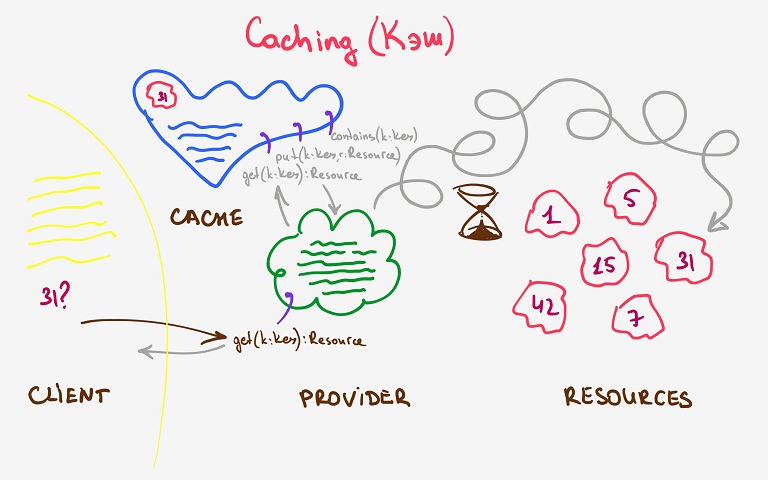 Caching (Кэш)
31
contains(k:Key)
put(k:Key, r:Resource)
get(k:Key):Resource
CACHE
1
5
15
31
42
7
31?
get(k:Key):Resource
CLIENT
PROVIDER
RESOURCES